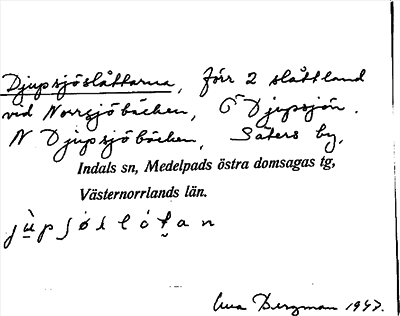 Djupsjöslåttarna, Förr 2 slåttland
vid Norrsjöbäcken, Ö Djupsjön.
N Djupsjöbäcken, Säters by,
Indals sn, Medelpads östra domsagas tg,
Västernorrlands län.
Bergman 1947.